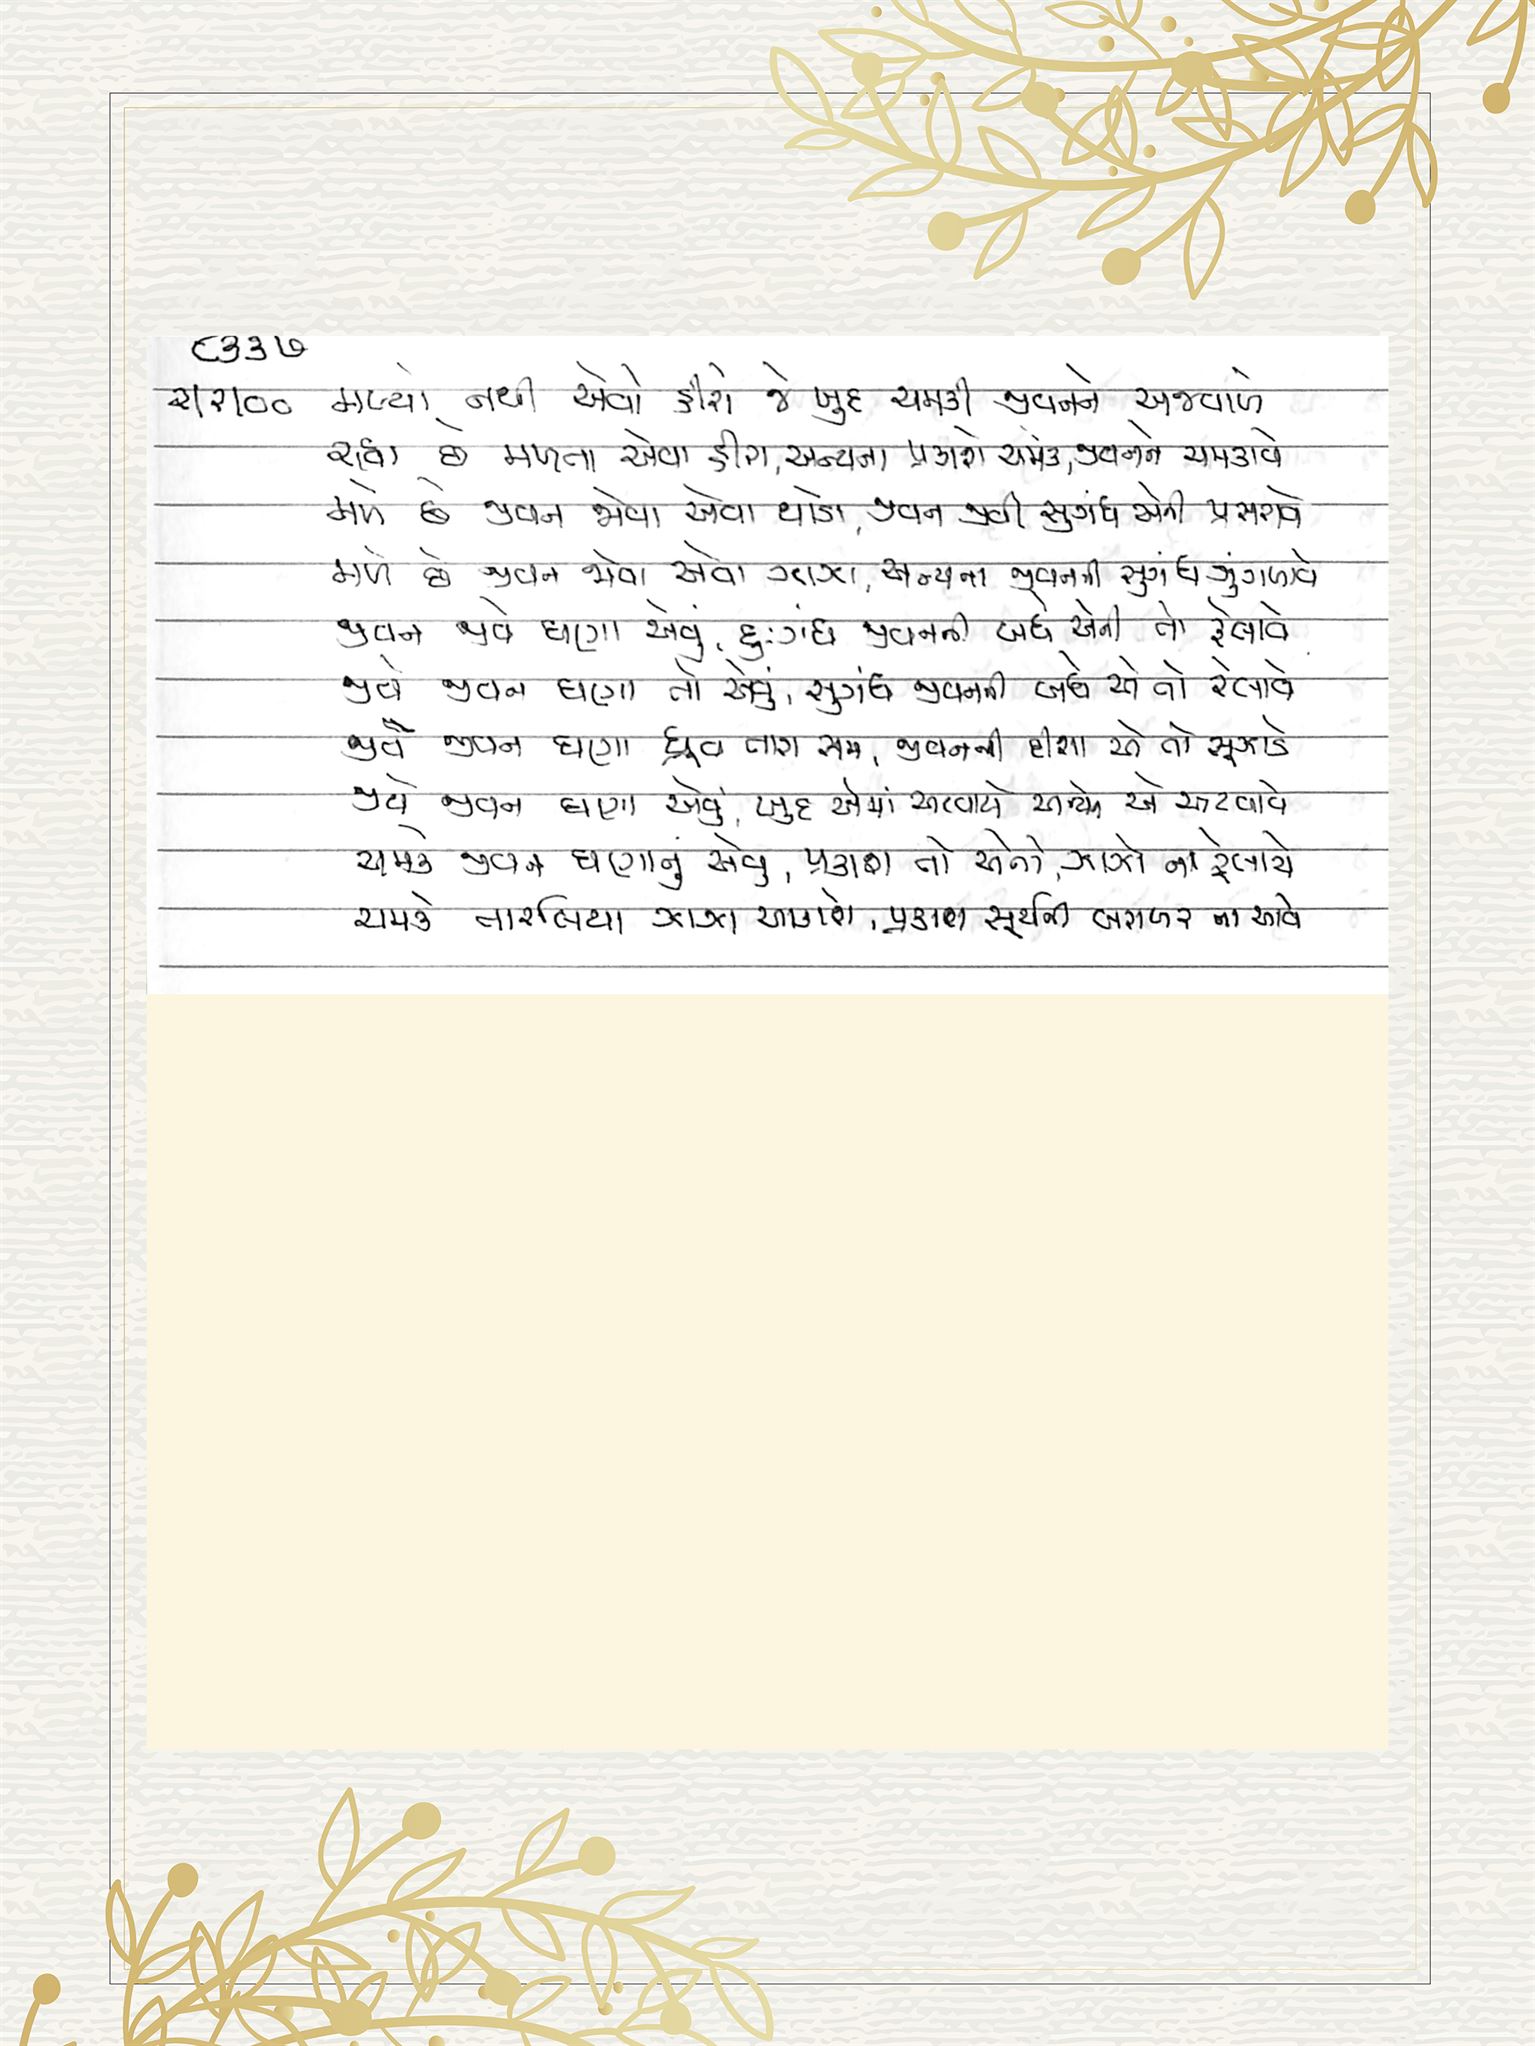 ૮૩૩૭
૨/૨/૦૦ મળ્યો નથી એવો હીરો જે ખુદ ચમકી જીવનને અજવાળે
રહ્યા છે મળતા એવા હીરા, અન્યના પ્રકાશે ચમકે, જીવનને ચમકાવે
મળે છે જીવન જોવા એવા થોડા, જીવન જીવી સુગંધ એની પ્રસરાવે
મળે છે જીવન જોવા એવા ઝાઝા, અન્યના જીવનની સુગંધ ગુંગળાવે
જીવન જીવે ઘણા એવું, દુઃગંધ જીવનની બધે એની તો ફેલાવે
જીવે જીવન ઘણા તો એવું, સુગંધ જીવનની બધે એ તો ફેલાવે
જીવે જીવન ઘણા ધ્રુવ તારા સમ, જીવનની દીશા એ તો સૂઝાડે
જીવે જીવન ઘણા એવું, ખુદ એમાં અટવાયે અન્યને એ અટવાવે
ચમકે જીવન ઘણાનું એવુ, પ્રકાશ તો એનો, ઝાઝો ના ફેલાયે
ચમકે તારલિયા ઝાઝા આકાશે, પ્રકાશ સૂર્યની બરાબર ના આવે